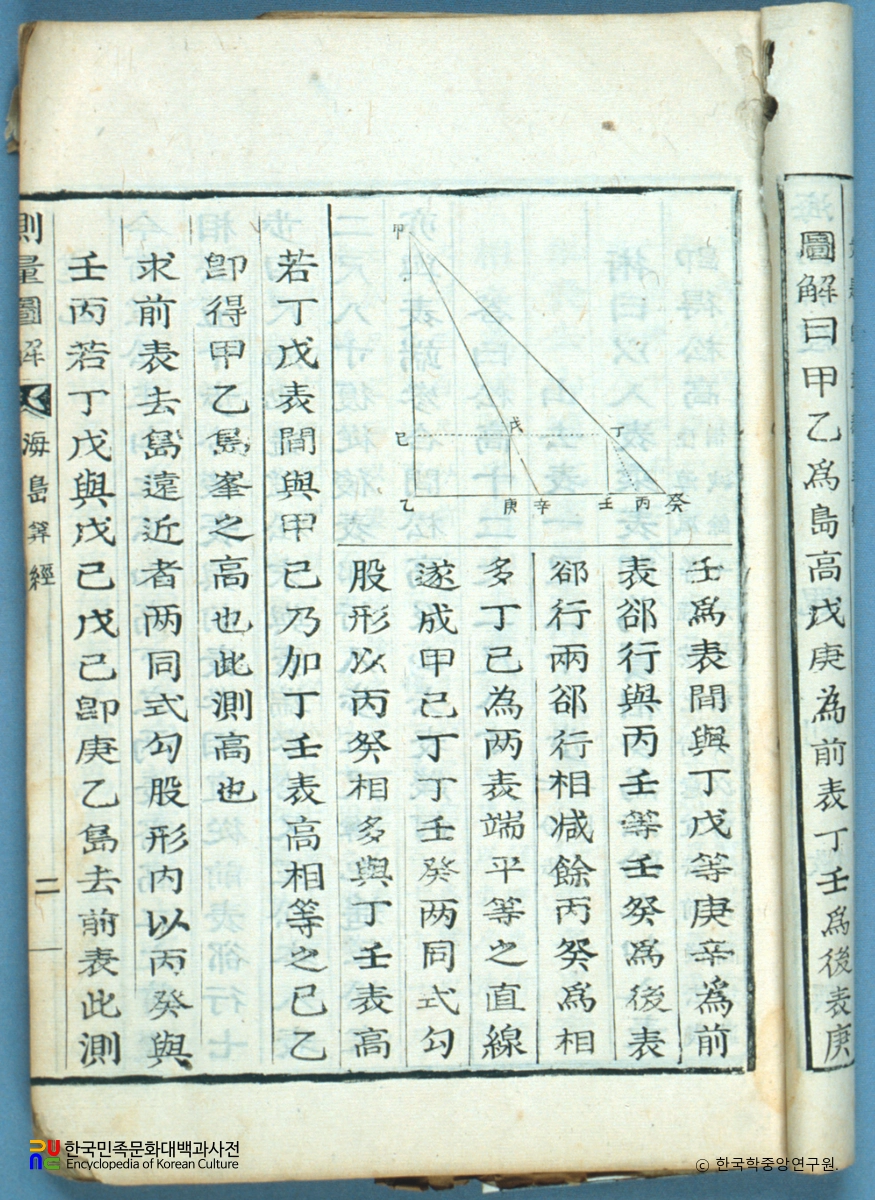 圖解曰甲乙爲島高戊庚為前表丁壬爲後表庚
壬爲表間與丁戊等庚辛爲前
表郤行與丙壬等壬癸爲後表
郤行兩郤行相减餘丙癸爲相
多丁己為两表端平等之直線
遂成甲己丁丁壬癸两同式勾
股形以丙癸相多與丁壬表高
若丁戊表間與甲己乃加丁壬表高相等之己乙
卽得甲乙島峯之高也此測高也
求前表去島遠近者两同式勾股形内以丙癸與
壬丙若丁戊與戊己戊己卽庚乙島去前表此測
測量圖解
海島筭經
二
甲
己
戊
丁
乙
庚
辛
壬
丙
癸
한국민족문화대백과사전
Encyclopedia of Korean Culture
© 한국학중앙연구원